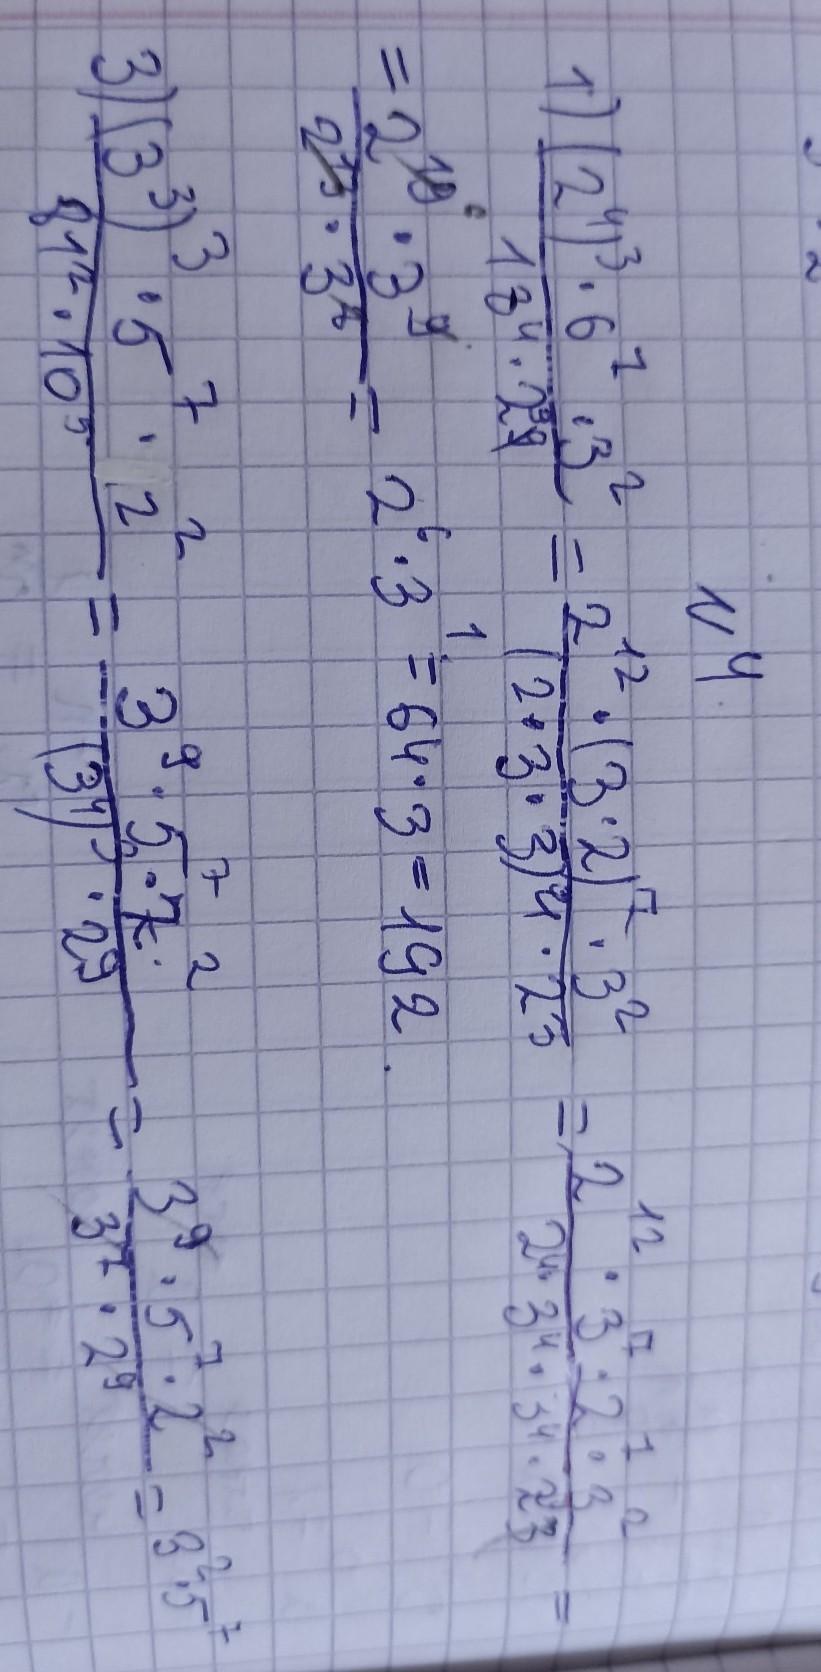 N4
1) (2⁴)³ · 6⁷ · 3² / 18⁴ · 2⁹ = 2¹² · (3 · 2)⁷ · 3² / (2 · 3 · 3)⁴ · 2⁹ = 2¹² · 3⁷ · 2⁷ · 3² / 2⁴ · 3⁴ · 3⁴ · 2⁹ =
= 2¹⁹ · 3⁹ / 2¹³ · 3⁸ = 2⁶ · 3¹ = 64 · 3 = 192.
3) (3³)³ · 5⁷ · 2² / 81² · 10⁵ = 3⁹ · 5⁷ · 2² / (3⁴) · 2⁹ = 3⁹ · 5⁷ · 2² / 3⁷ · 2⁹ = 3² · 5⁷